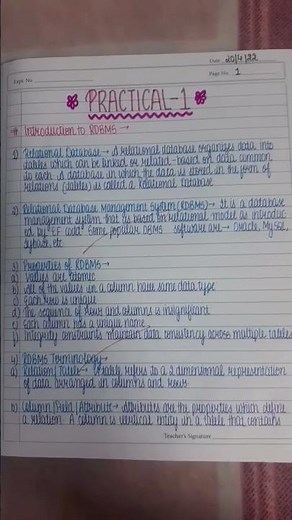 Date 20/4/22
Expt. No.
Page No. 1
PRACTICAL-1
Introduction to RDBMS →
1) Relational Database → A relational database organizes data into
tables which can be linked or related - based on data common
to each. A database in which the data is stored in the form of
relations (tables) is called a Relational Database.
2) Relational Database Management System (RDBMS) → It is a database
management system that is based on relational model as introduc
ed by EF codd. Some popular DBMS software are → Oracle, MySQL,
Sybase, etc
3) Properties of RDBMS →
a) Values are atomic
b) All of the values in a column have same data type
c) Each row is unique
d) The sequence of rows and columns is insignificant
e) Each column has a unique name
f) Integrity constraints maintain data consistency across multiple tables
4) RDBMS Terminology →
a) Relation/Table → A table refers to a 2 dimensional representation
of data arranged in columns and rows.
b) Column/Field/Attribute → Attributes are the properties which define
a relation. A column is vertical entity in a table that contains
Teacher's Signature